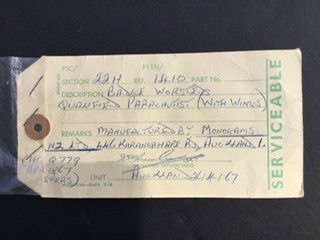 FSC/ FIIN/
SECTION 22H REF. 1410 PART No.
DESCRIPTION BADGE WORSTED
QUALIFIED PARACHUTIST (WITH WINGS)
REMARKS MANUFACTURED BY MONOGRAMS
NZ LTD, 446 KARANGAHAPE RD AUCKLAND 1.
Q779
1867
UNIT AUCKLAND 21/4/67
SERVICEABLE